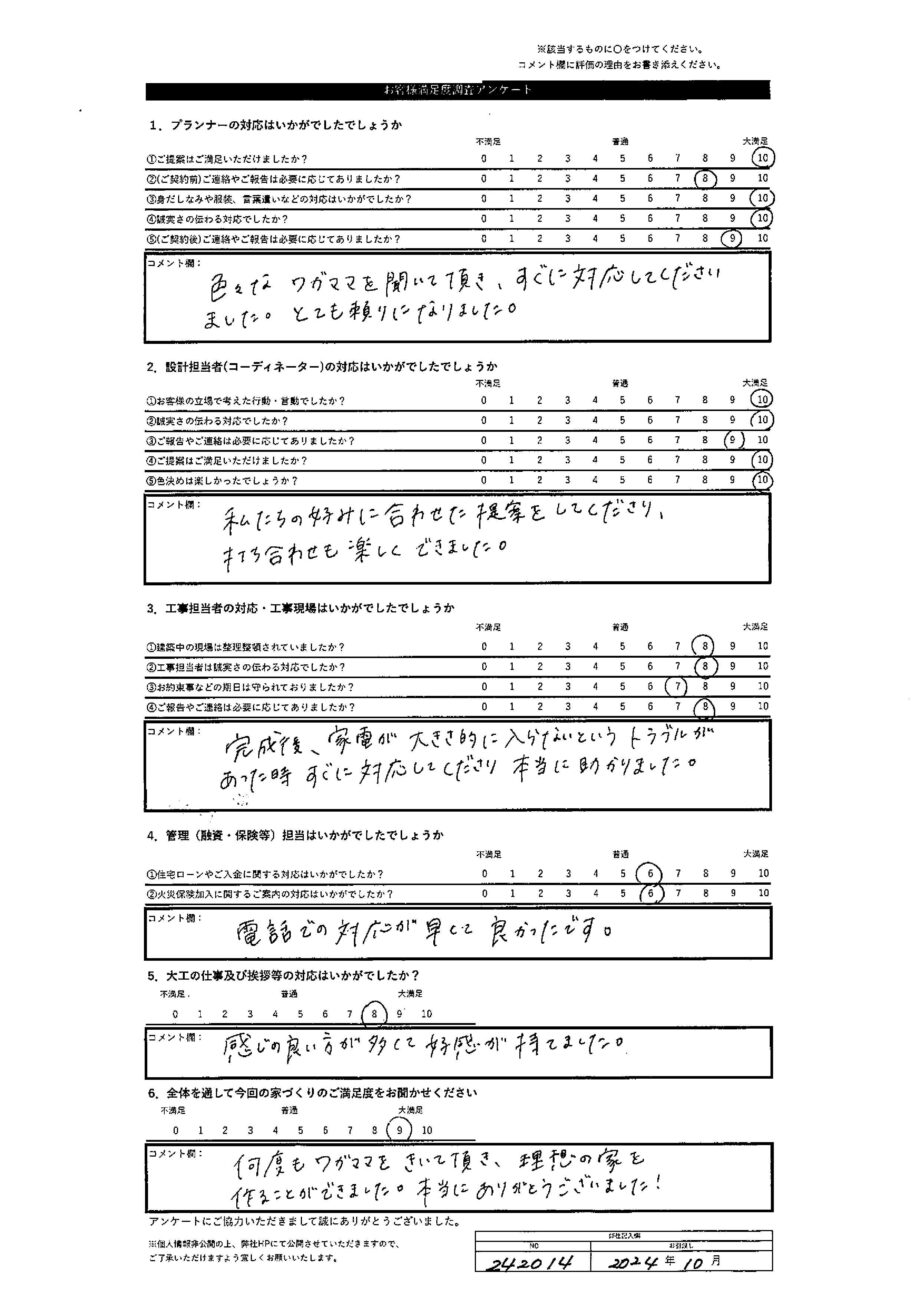 ※該当するものに〇をつけてください。
コメント欄に評価の理由をお書き添えください。
お客様満足度調査アンケート
1．プランナーの対応はいかがでしたでしょうか
不満足 普通 大満足
①ご提案はご満足いただけましたか？ 0 1 2 3 4 5 6 7 8 9 10
②(ご契約前)ご連絡やご報告は必要に応じてありましたか？ 0 1 2 3 4 5 6 7 8 9 10
③身だしなみや服装、言葉遣いなどの対応はいかがでしたか？ 0 1 2 3 4 5 6 7 8 9 10
④誠実さの伝わる対応でしたか？ 0 1 2 3 4 5 6 7 8 9 10
⑤(ご契約後)ご連絡やご報告は必要に応じてありましたか？ 0 1 2 3 4 5 6 7 8 9 10
コメント欄：
色々な ワガママを聞いて頂き、すぐに対応してください
ました。とても頼りになりました。
2．設計担当者(コーディネーター)の対応はいかがでしたでしょうか
不満足 普通 大満足
①お客様の立場で考えた行動・言動でしたか？ 0 1 2 3 4 5 6 7 8 9 10
②誠実さの伝わる対応でしたか？ 0 1 2 3 4 5 6 7 8 9 10
③ご報告やご連絡は必要に応じてありましたか？ 0 1 2 3 4 5 6 7 8 9 10
④ご提案はご満足いただけましたか？ 0 1 2 3 4 5 6 7 8 9 10
⑤色決めは楽しかったでしょうか？ 0 1 2 3 4 5 6 7 8 9 10
コメント欄：
私たちの好みに合わせた提案をしてくださり、
打ち合わせも楽しくできました。
3．工事担当者の対応・工事現場はいかがでしたでしょうか
不満足 普通 大満足
①建築中の現場は整理整頓されていましたか？ 0 1 2 3 4 5 6 7 8 9 10
②工事担当者は誠実さの伝わる対応でしたか？ 0 1 2 3 4 5 6 7 8 9 10
③お約束事などの期日は守られておりましたか？ 0 1 2 3 4 5 6 7 8 9 10
④ご報告やご連絡は必要に応じてありましたか？ 0 1 2 3 4 5 6 7 8 9 10
コメント欄：
完成後、家電が大きさ的に入らないというトラブルが
あった時すぐに対応してくださり本当に助かりました。
4．管理（融資・保険等）担当はいかがでしたでしょうか
不満足 普通 大満足
①住宅ローンやご入金に関する対応はいかがでしたか？ 0 1 2 3 4 5 6 7 8 9 10
②火災保険加入に関するご案内の対応はいかがでしたか？ 0 1 2 3 4 5 6 7 8 9 10
コメント欄：
電話での対応が早くて良かったです。
5．大工の仕事及び挨拶等の対応はいかがでしたか？
不満足 普通 大満足
0 1 2 3 4 5 6 7 8 9 10
コメント欄：
感じの良い方が多くて好感が持てました。
6．全体を通して今回の家づくりのご満足度をお聞かせください
不満足 普通 大満足
0 1 2 3 4 5 6 7 8 9 10
コメント欄：
何度もワガママをきいて頂き、理想の家を
作ることができました。本当にありがとうございました！
アンケートにご協力いただきまして誠にありがとうございました。
※個人情報非公開の上、弊社HPにて公開させていただきますので、
ご了承いただけますよう宜しくお願いいたします。
弊社記入欄
NO お引渡し
242014 2024年10月